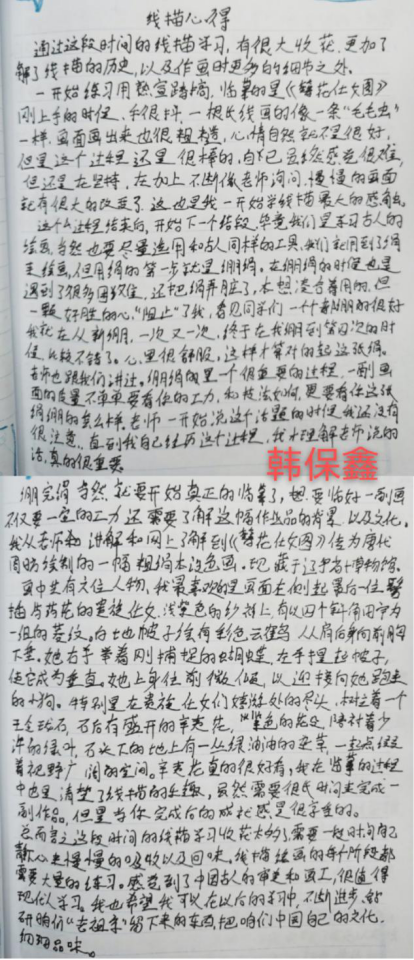 线描心得
通过这段时间的线描学习,有很大收花,更加了
解了线描的历史,以及作画时更多的细节之外。
一开始练习用熟宣踏稿,临摹的是《簪花仕女图》
刚上手的时候,手很抖,一根长线画的像一条"毛毛虫"
一样,画面画出来也很粗糙,心情自然就不是很好,
但是这个过程还是很棒的,自己虽然感觉很难,
但还是在坚持,在加上不断像老师询问,慢慢的画面
就有很大的改变了,这也是我一开始学线描最大的感触。
这个过程结束后,开始下一个阶段,毕竟我们是学习古人的
绘画,当然也要尽量选用和古人同样的工具,我们就用到了绢
来绘画,但用绢的第一步就是绷绢。在绷绢的时候也是
遇到了很多困难,还把绢弄脏了,本想凑合着用的,但
一颗好胜的心"阻止"了我,看见同学们一个个都绷的很好
我就在从新绷,一次又一次,终于在我绷到第四次的时
候,比较不错了。心里很舒服,这样才算对的起这张绢。
老师也跟我们讲过。绷绢是一个很重要的过程,一副画
面的质量不单单要看你的工力,和技法如何,更要看你这张
绢绷的怎么样,老师一开始说这个话题的时候我还没有
很注意,直到我自己经历这个过程,我才理解老师说的
话,真的很重要
韩保鑫
绷完绢,当然就要开始真正的临摹了,想要临好一副画
不仅要一定的工力,还需要了解这幅作品的背景以及文化。
我从老师和讲解和网上了解到《簪花仕女图》传为唐代
周昉绘制的一幅粗绢本设色画,现藏于辽宁省博物馆。
画中共有六位人物,我最喜欢的是画面右侧起第后一位,髻
插荷花的贵族仕女,浅紫色的纱衫上,有以四个斜角田字为
一组的菱纹。白地帔子绘有彩色云鹤,从肩后斜向前胸
下垂。她右手举着刚捕捉的蝴蝶,左手提起帔子,
使它成为垂直。她上身位前微倾,以迎接向她跑来
的小狗。特别是在贵族仕女们嬉游处的尽头,树立着一个
玉色珑石,石后有盛开的辛夷花,紫色的花朵,陪衬着少
许的绿叶,石头下的地上有一丛绿油油的杂草,一起点缀
着视野广阔的空间。辛夷花真的很好看,我在临摹的过程
中也是清楚了线描的乐趣,虽然需要很长时间来完成一
副作品,但是当你完成后的成就感是很享受的。
总而言之这段时间的线描学习收花太多了,需要一段时间自己
静心来慢慢的吸收以及回味,线描绘画的每个阶段都
需要大量的练习。感觉到了中国古人的审美和画工,很值得
现代人学习。我也希望我可以在以后的学习中,不断进步,钻
研咱们"老祖宗"留下来的东西,把咱们中国自己的文化,
细细品味。